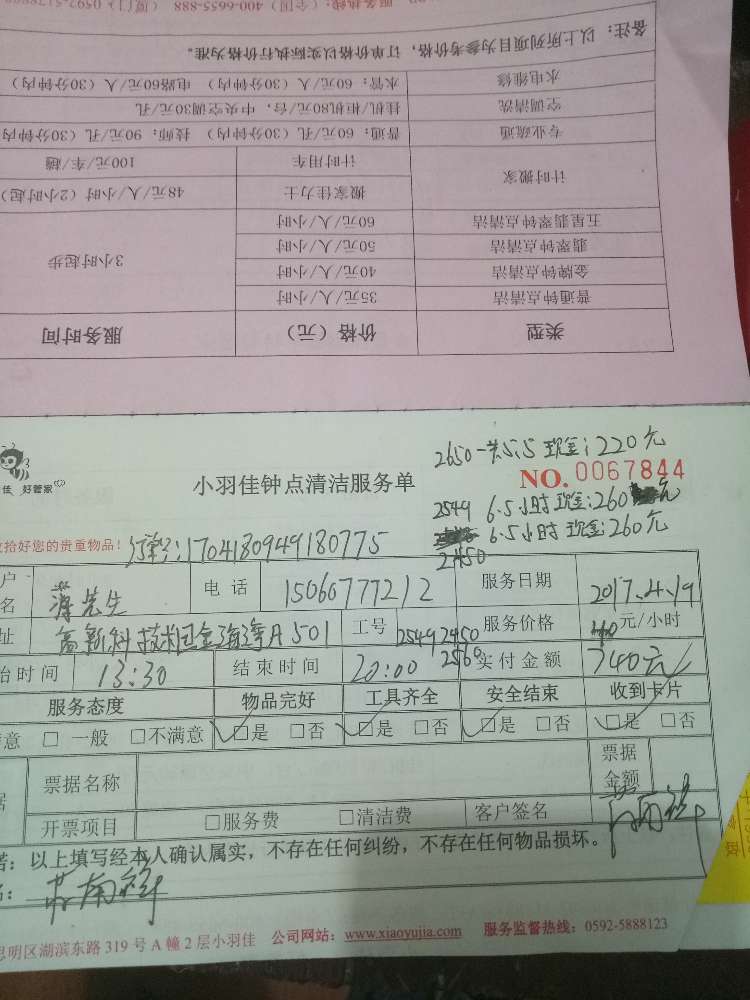 服务热线：（全国）400-6655-888 （厦门）0592-5178
备注：以上所列项目为参考价格，订单价格以实际执行价格为准。
水电维修 水管：60元/人（30分钟内） 电路60元/人（30分钟内
空调清洗 挂机/柜机80元/台，中央空调30元/孔
专业疏通 普通：60元/孔（30分钟内） 技师：90元/孔（30分钟内
计时搬家 计时用车 100元/车/趟
搬家佳力士 48元/人/小时（2小时起）
五星翡翠钟点清洁 60元/人/小时 3小时起步
翡翠钟点清洁 50元/人/小时
金牌钟点清洁 40元/人/小时
普通钟点清洁 35元/人/小时
类型 价格（元） 服务时间
佳 好管家
小羽佳钟点清洁服务单
2650一共5.5 现金：220元
NO. 0067844
2549 6.5小时现金：260元
2450 6.5小时 现金：260元
拾好您的贵重物品！
1704180949180775
户名 先生 电话 15060777212 服务日期 2017.4.19
址 高新科技园金海湾A501 工号 2549 2450 2560 服务价格 40元/小时
始时间 13:30 结束时间 20:00 实付金额 740元
服务态度 物品完好 工具齐全 安全结束 收到卡片
意 □ 一般 □不满意 □是 □否 □是 □否 □是 □否 □是 □否
据 票据名称 票据金额
开票项目 □服务费 □清洁费 客户签名
诺：以上填写经本人确认属实，不存在任何纠纷，不存在任何物品损坏。
名：
思明区湖滨东路 319 号 A 幢 2 层小羽佳 公司网站：www.xiaoyujia.com 服务监督热线：0592-5888123